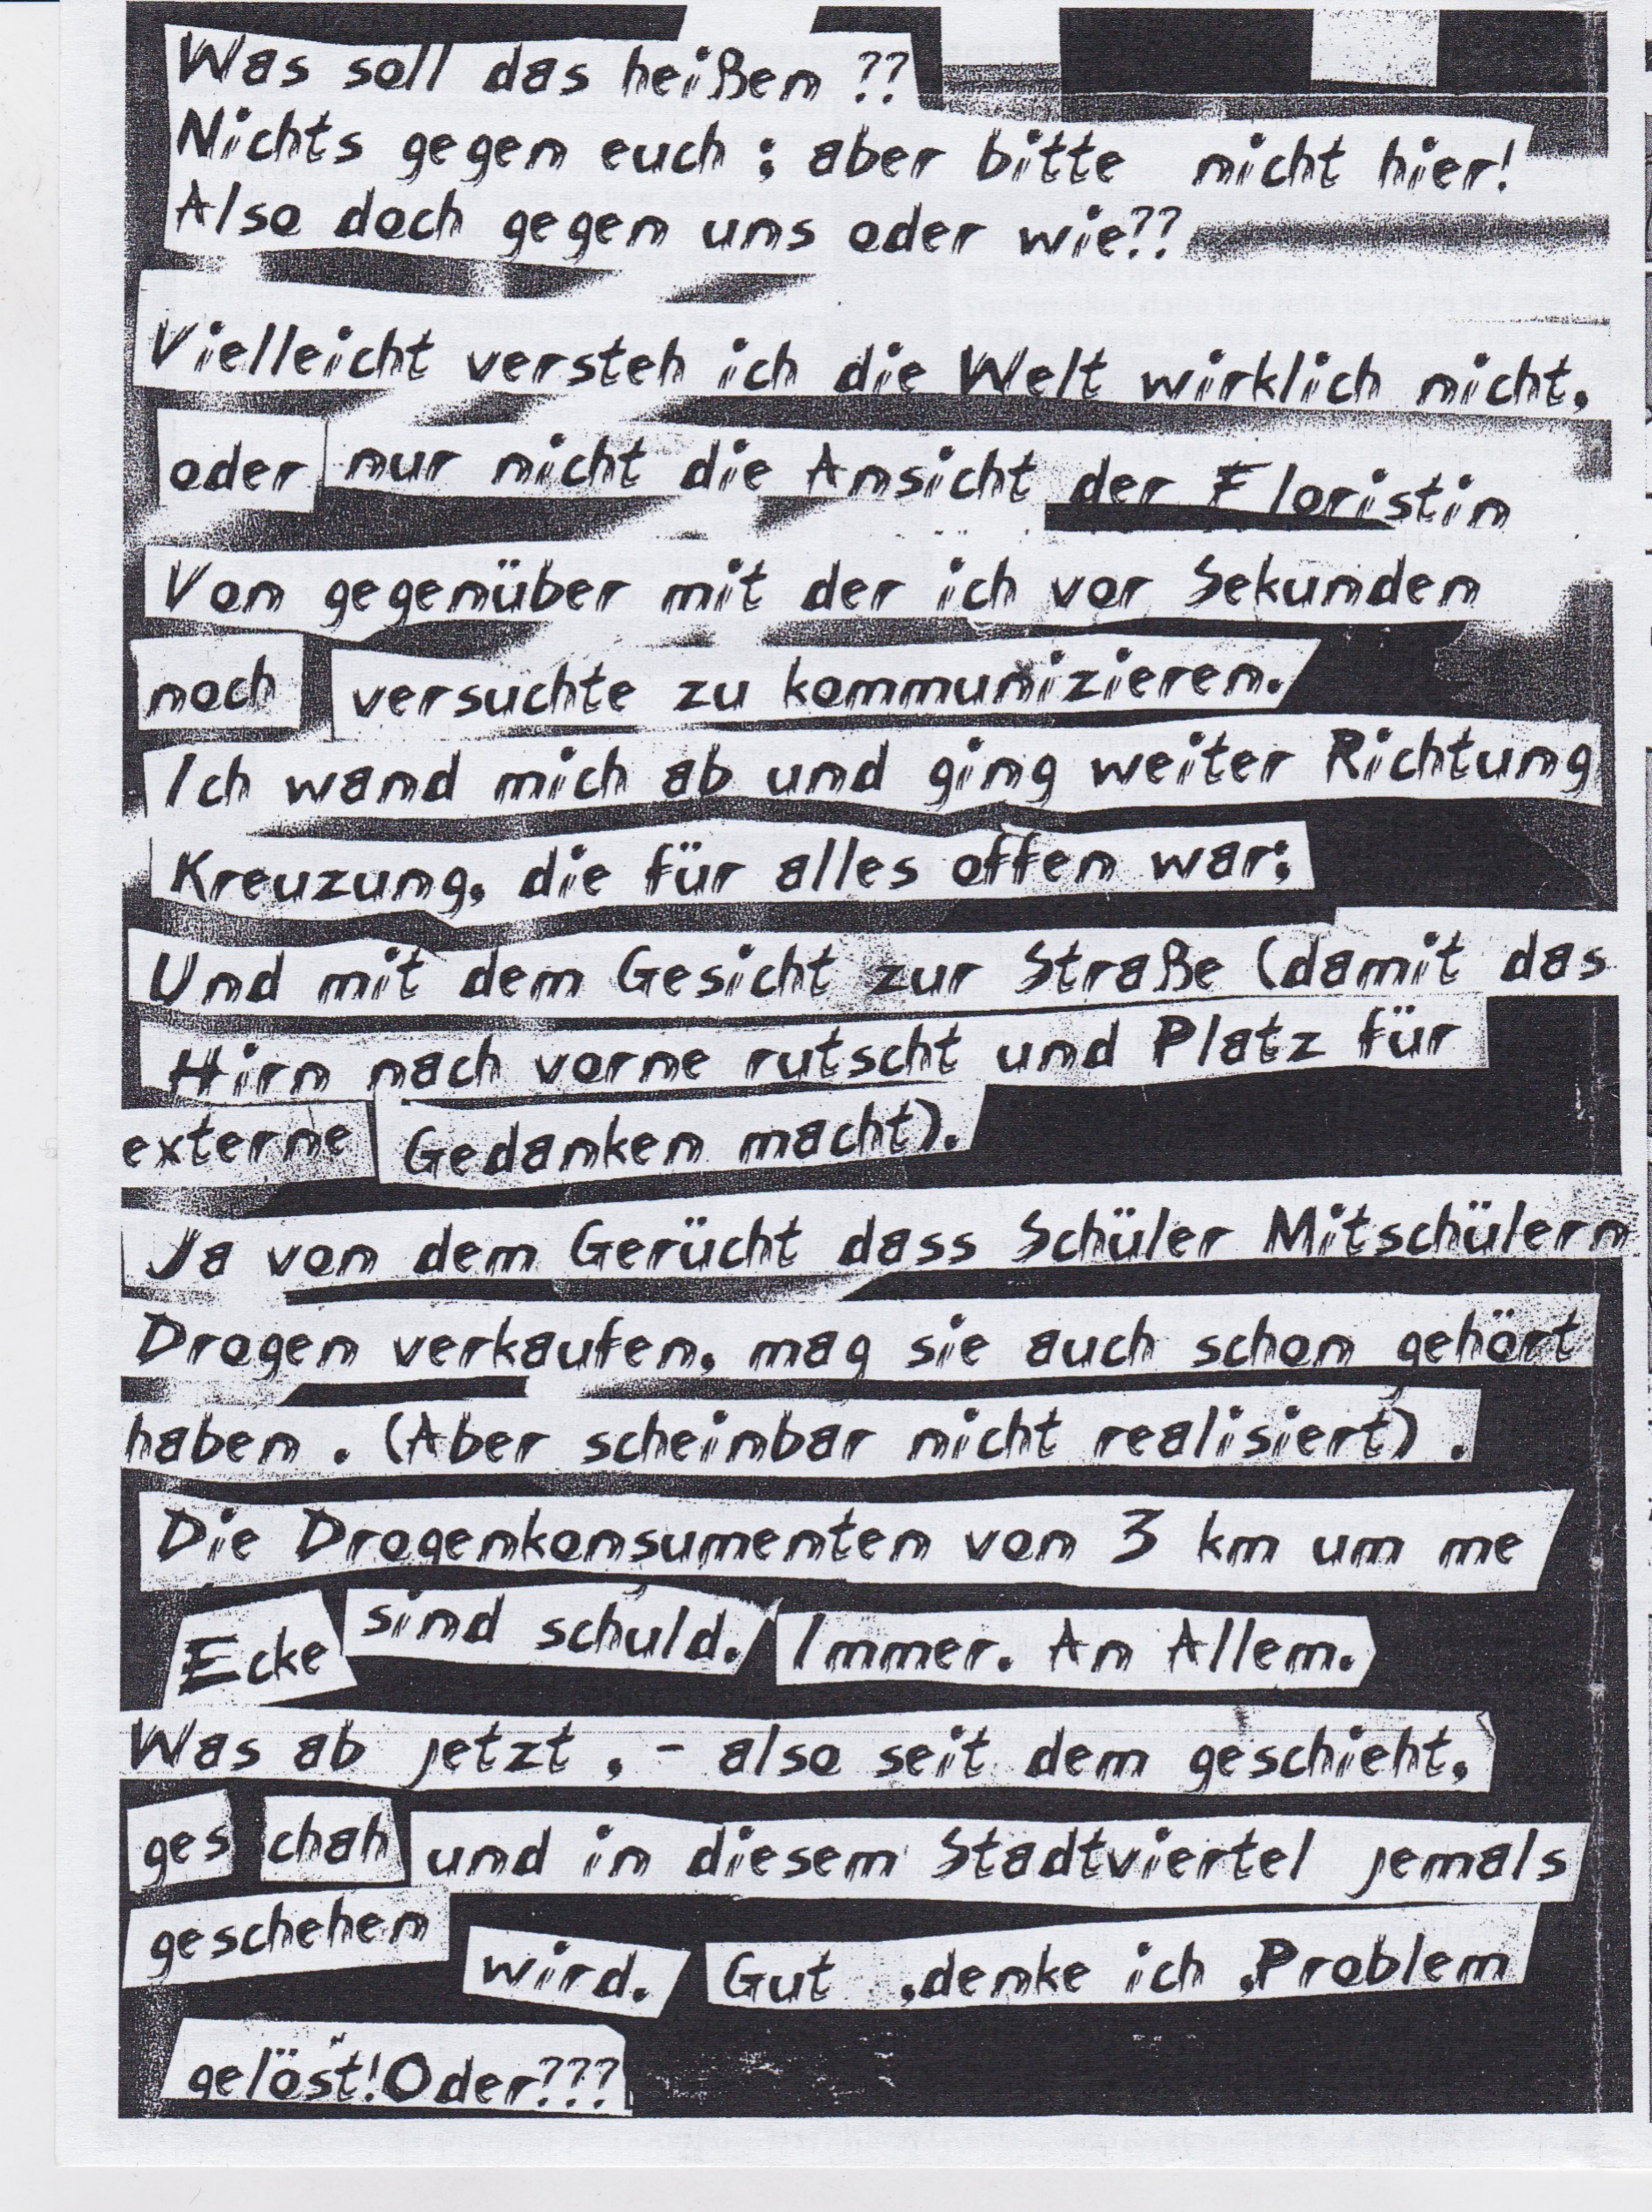 Was soll das heißen ??
Nichts gegen euch ; aber bitte nicht hier!
Also doch gegen uns oder wie??
Vielleicht versteh ich die Welt wirklich nicht,
oder nur nicht die Ansicht der Floristin
Von gegenüber mit der ich vor Sekunden
noch versuchte zu kommunizieren.
Ich wand mich ab und ging weiter Richtung
Kreuzung, die für alles offen war;
Und mit dem Gesicht zur Straße (damit das
Hirn nach vorne rutscht und Platz für
externe Gedanken macht).
Ja von dem Gerücht dass Schüler Mitschülern
Drogen verkaufen, mag sie auch schon gehört
haben . (Aber scheinbar nicht realisiert) .
Die Drogenkonsumenten von 3 km um ne
Ecke sind schuld. Immer. An Allem.
Was ab jetzt , - also seit dem geschieht,
ges chah und in diesem Stadtviertel jemals
geschehen wird. Gut ,denke ich ,Problem
gelöst!Oder???